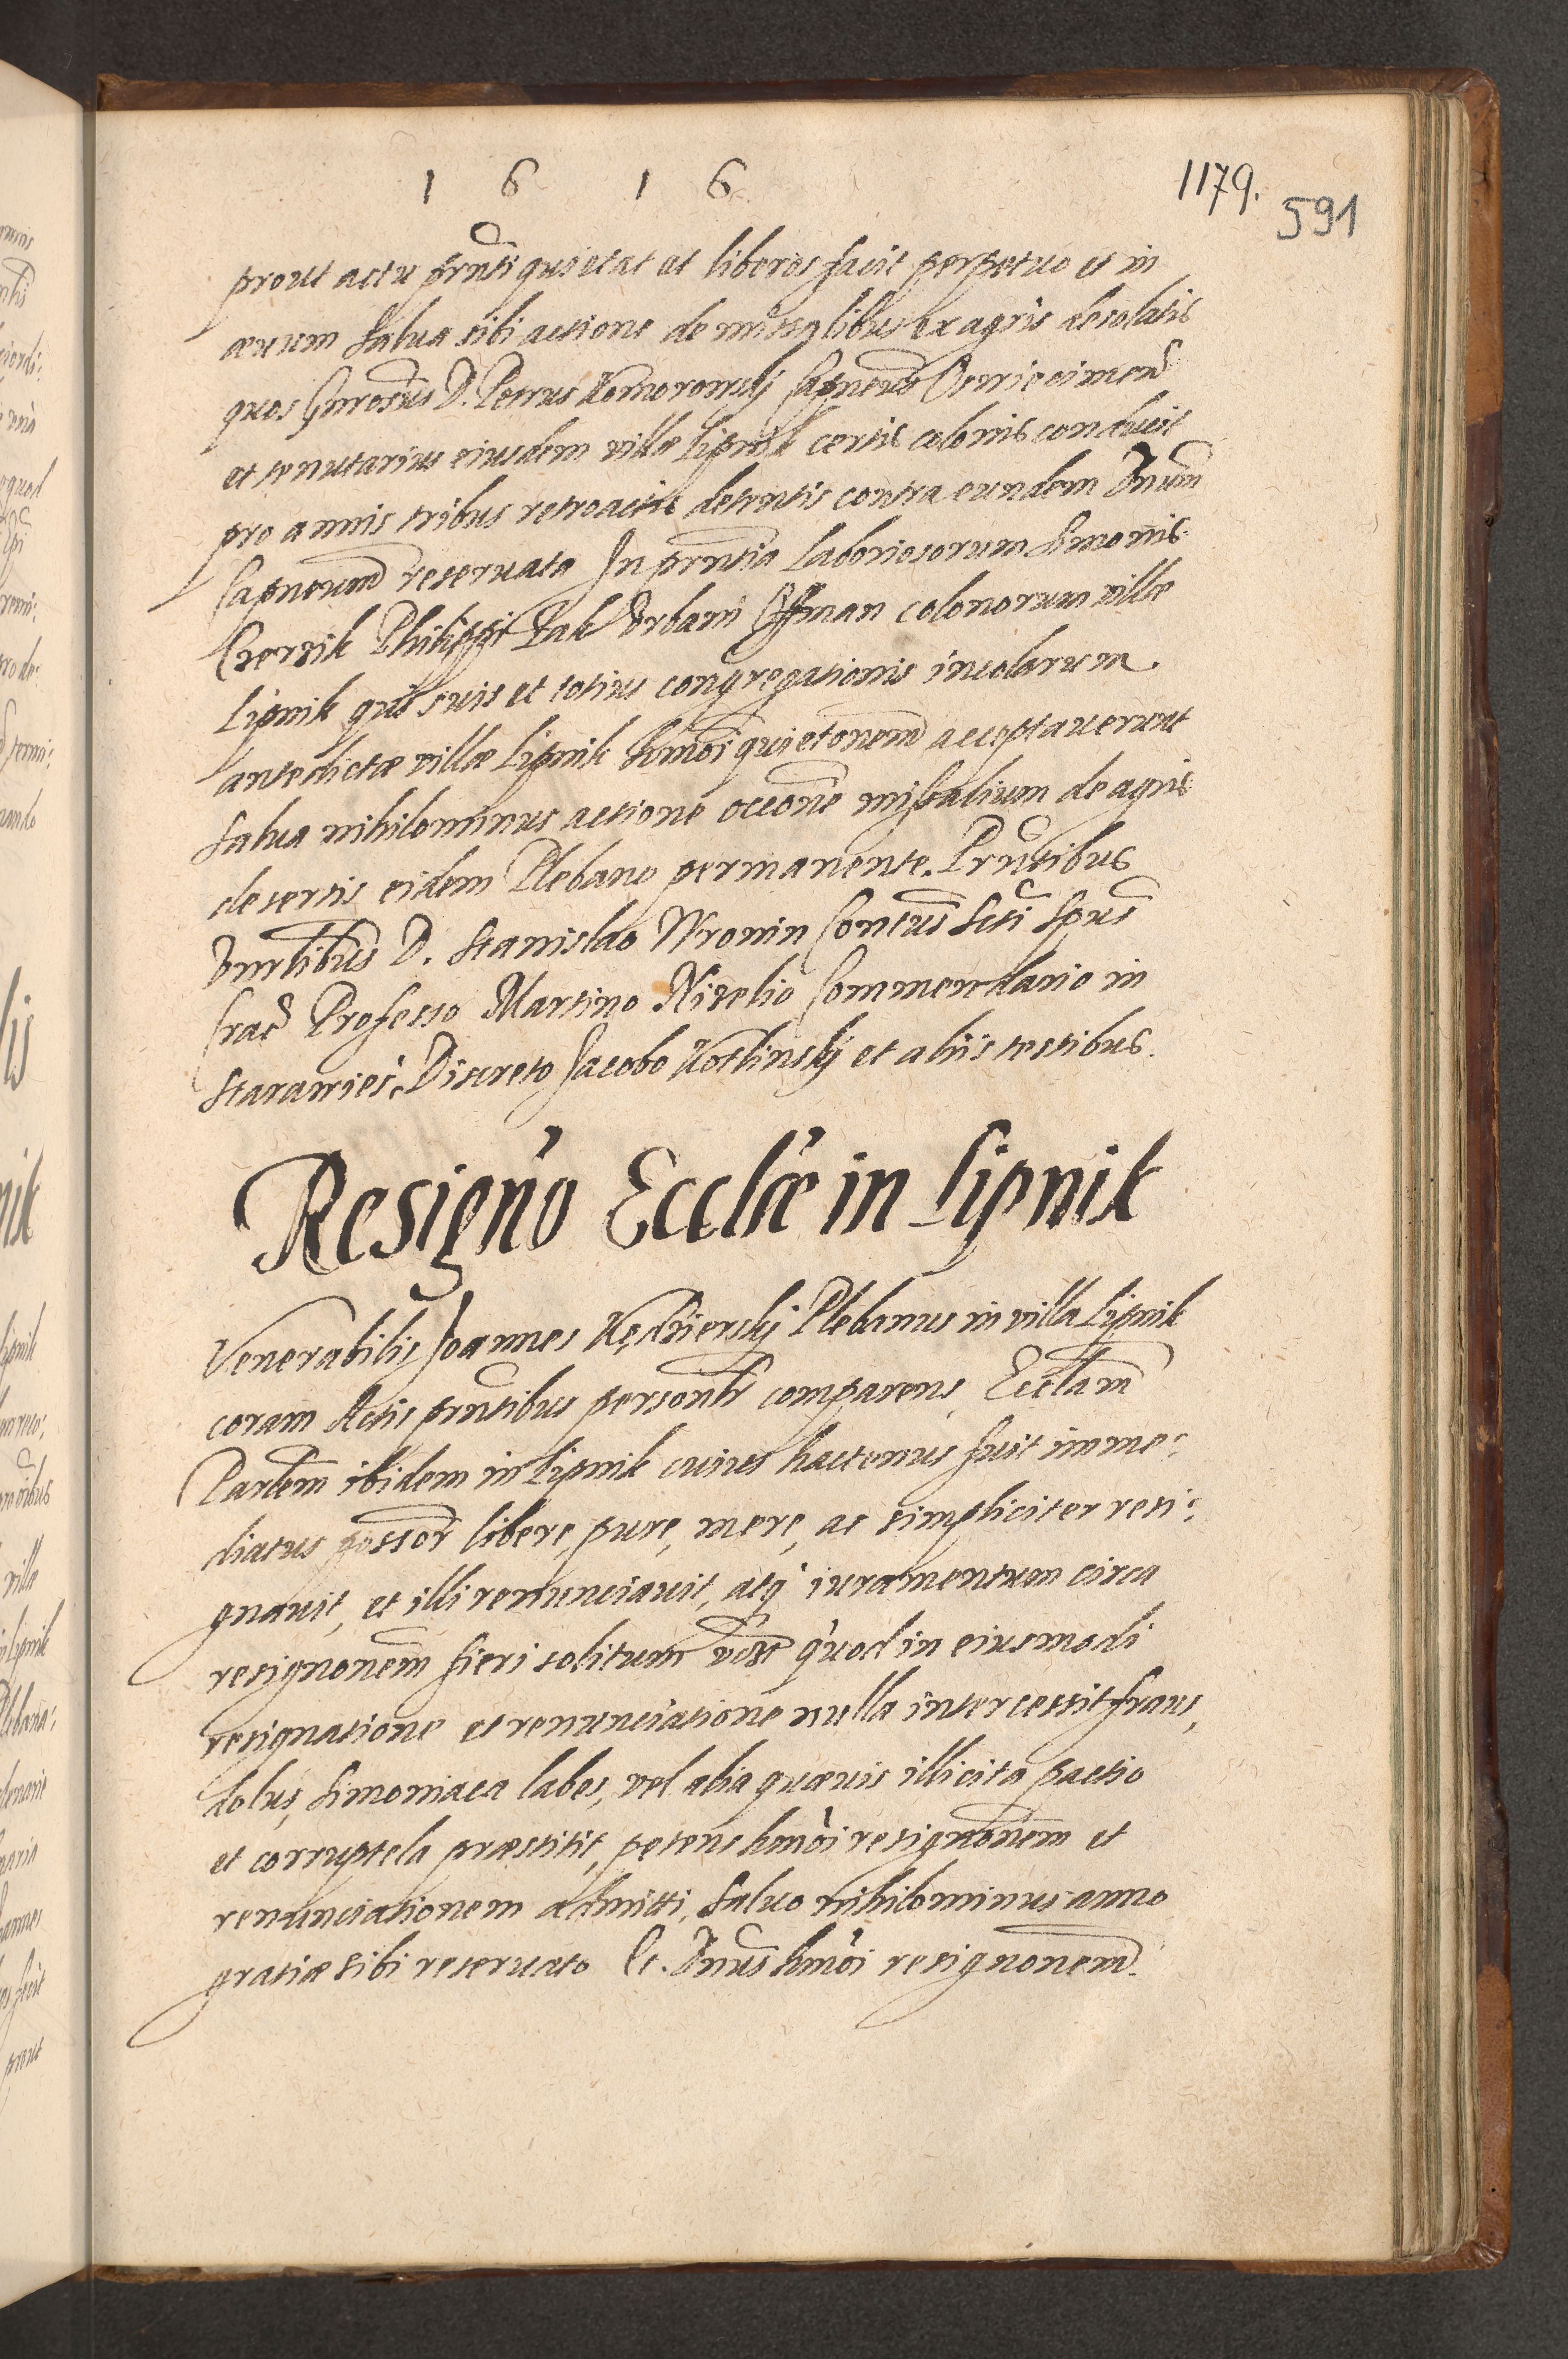 1 6 1 6
1179.
591
prout actu prn̄ti quietat et liberos facit perpetuo et in
æuum Salua sibi actione de missalibus ex agris desolatis
quos Gnrosus D. Petrus Komorowskj Capneus
et tenutarius eiusdem villæ Lipnik certis colonis conducit
pro annis tribus retroactis detentis contra eundem Dnum
Capneum reseruata In prn̄tia Laboriosorum Simonis
Philippi Pak Vrbani Hofman colonorum villæ
Lipnik qui suis et totius congregationis incolarum
antedictæ villæ Lipnik hmōi quietonem acceptauerunt
Salua nihilominus actione occone missalium de agris
desertis eidem Plebano permanente. Prn̄tibus
D. Stanislao Wronin Conuus Scti Spus
Crac Professo Martino Nizelio Commendario in
Starawies, Discreto Jacobo Kotlinskj et aliis testibus.
Resigno Ecclæ in Lipnik
Venerabilis Joannes Kędzierskj Plebanus in villa Lipnik
coram Actis prn̄tibus personlr comparens, Ecclam
Parlem ibidem in Lipnik cuius hactenus fuit imme:
diatus possor libere, pure, mere, ac simpliciter resi:
gnauit, et illi renunciauit, atq iuramentum circa
resignonem fieri solitum vdzt quod in eiusmodi
resignatione et renunciatione nulla intercessit fraus,
dolus, simoniaca labes, vel alia quæuis illicita pactio
et corruptela præstitit, petens hmōi resignonem et
renunciationem admitti, Saluo nihilominus anno
gratiæ sibi reseruato Et Dnus hmōi resignonem